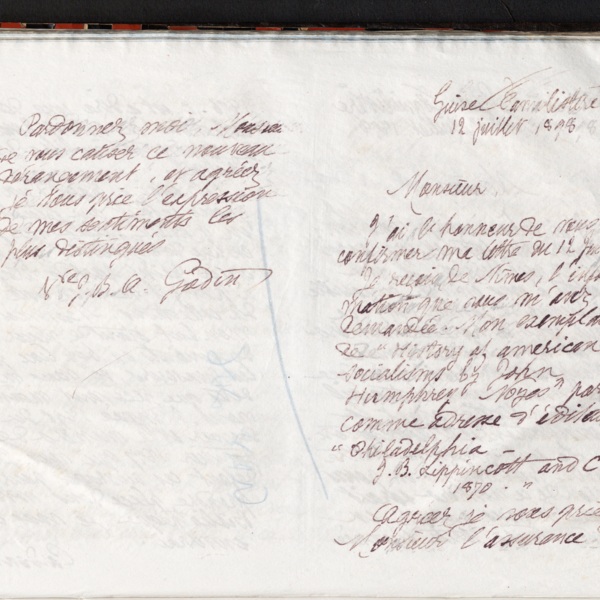 Pardonnez moi, Monsieur
de vous causer ce nouveau
dérangement, et agréez
je vous prie l'expression
de mes sentiments les
plus distingués
Vve J. B. A. Godin
Guise Familistère
12 juillet 1898
Monsieur
J'ai l'honneur de vous
confirmer ma lettre du 12
Je reçois de Nîmes, l'infor
mation que vous m'avez
demandée. Mon exemplai
de "History of american
socialisms by John
Humphrey Noyes" par
comme adresse d'édite
"Philadelphia –
J. B. Lippincott and C
1870 – "
Agréez je vous prie
Monsieur l'assurance